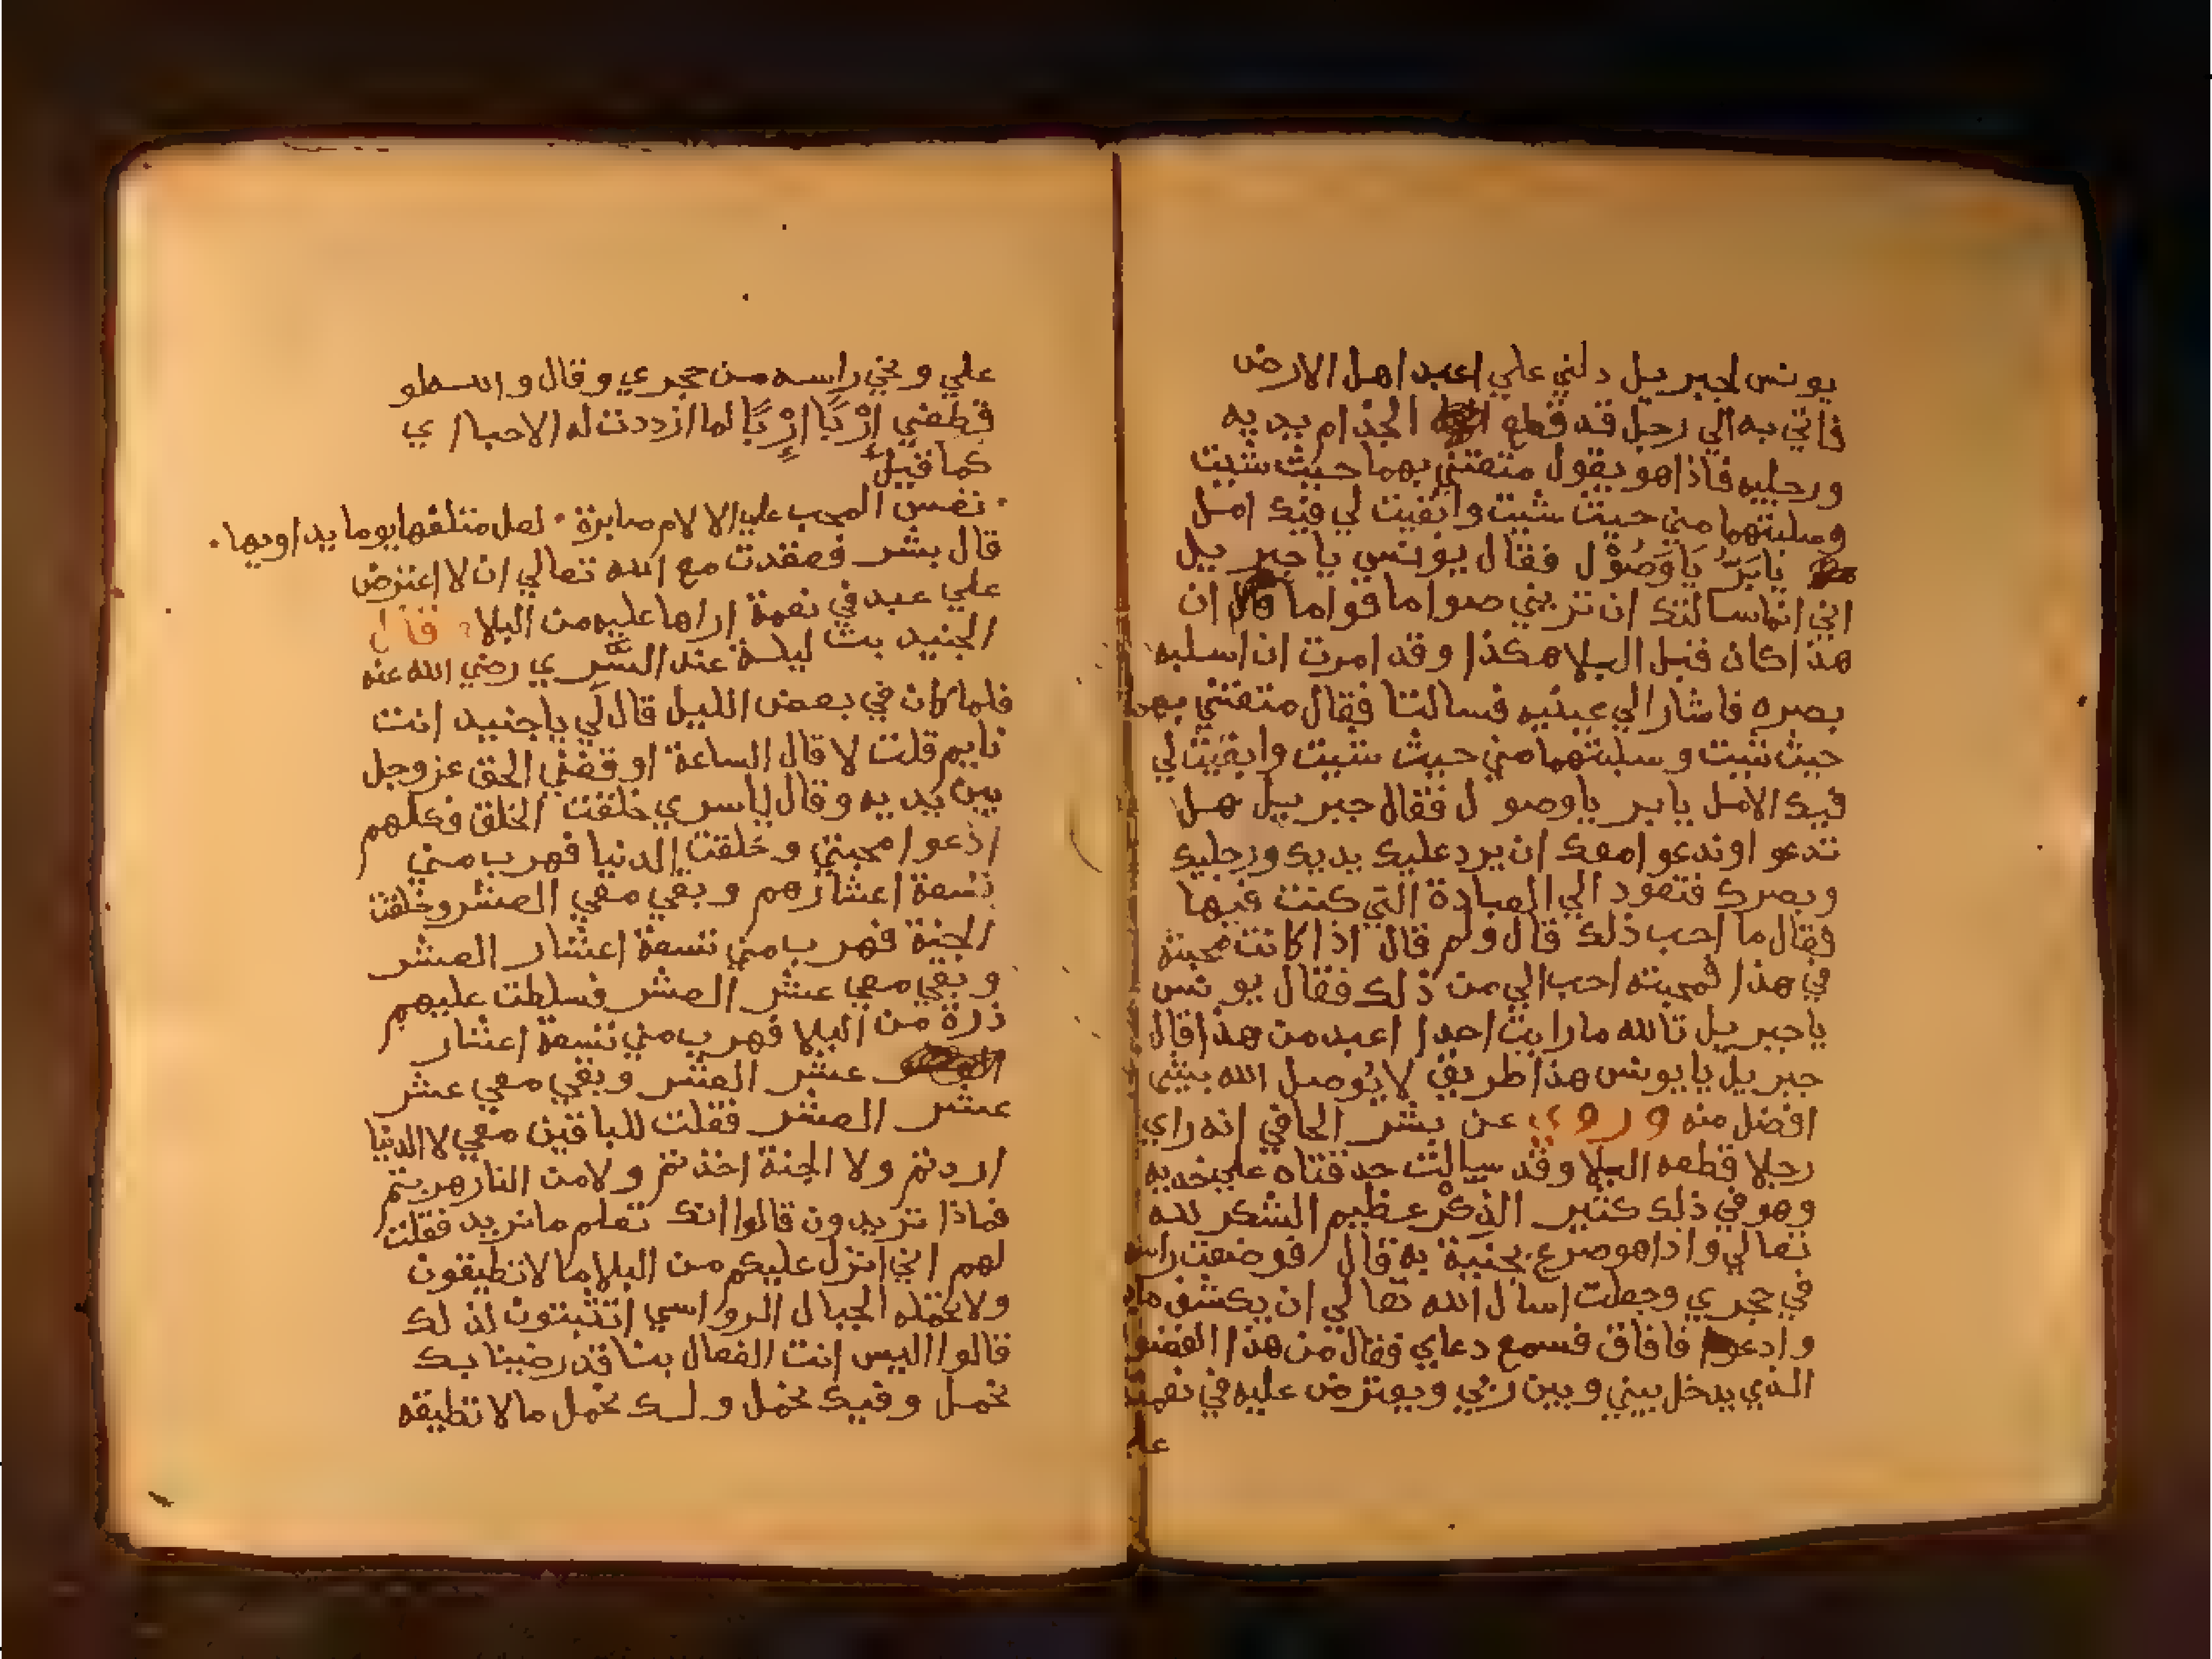 يونس لجبريل دلني علي اعبد اهل الارض
فاتي به الي رجل قد قطع الجذام يديه
ورجليه فاذا هو يقول متعتني بهما حيث شيت
وسلبتهما مني حيث شيت وابقيت لي فيك امل
يا بَرُّ يَا وَصُوْل فقال يونس يا جبريل
اني انما سالتك ان تريني صواما قواما قال ان
هذا كان قبل البلا هكذا وقد امرت ان اسلبه
بصره فاشار الي عينيه فسالتا فقال متعتني بهما
حيث شيت وسلبتهما مني حيث شيت وابقيت لي
فيك الامل يا بر يا وصول فقال جبريل هل
تدعو اوندعوا معك ان يرد عليك يديك ورجليك
وبصرك فتعود الي العبادة التي كنت فيها
فقال ما احب ذلك قال ولم قال اذا كانت محبته
في هذا فمحبته احب الي من ذلك فقال يونس
يا جبريل تالله ما رايت احدا اعبد من هذا قال
جبريل يا يونس هذا طريق لا يُوصل الله بشي
افضل منه وروي عن بشر الحافي انه راي
رجلا قطعه البلا وقد سالت حدقتاه علي خديه
وهو في ذلك كثير الذكر عظيم الشكر لله
تعالي واذا هو صرع بجنية به قال فوضعت راسه
في حجري وجعلت اسال الله تعالي ان يكشف ما به
وادعوا فافاق فسمع دعاي فقال من هذا الفضو
الذي يدخل بيني وبين ربي ويعترض عليه في نعمه
علي
علي ونحي راسه من حجري وقال والله لو
قطعني اِرْبًا اِرْبًا لما ازددت له الاحبا / ي
كما قيل
نفس المحب علي الالام صابرة • لعل متلفها يوما يداويها •
قال بشر فعقدت مع الله تعالي ان لا اعترض
علي عبد في نعمة اراها عليه من البلا قال
الجنيد بت ليلة عند السَّري رضي الله عنه
فلما كان في بعض الليل قال لي يا جنيد انت
نايم قلت لا قال الساعة اوقفني الحق عز وجل
بين يديه وقال يا سري خلقت الخلق فكلهم
ادعوا محبتي وخلقت الدنيا فهرب مني
تسعة اعشارهم وبقي معي العشر وخلقت
الجنة فهرب مني تسعة اعشار العشر
وبقي معي عشر العشر فسلطت عليهم
ذرة من البلا فهرب مني تسعة اعشار
عشر العشر وبقي معي عشر
عشر العشر فقلت للباقين معي لا الدنيا
اردتم ولا الجنة اخذتم ولا من النار هربتم
فماذا تريدون قالوا انك تعلم ما نريد فقلت
لهم اني انزل عليكم من البلا ما لا تطيقون
ولا تحمله الجبال الرواسي اتثبتون لذلك
قالوا اليس انت الفعال بنا قد رضينا بك
نحمل وفيك نحمل ولك نحمل ما لا تطيقه